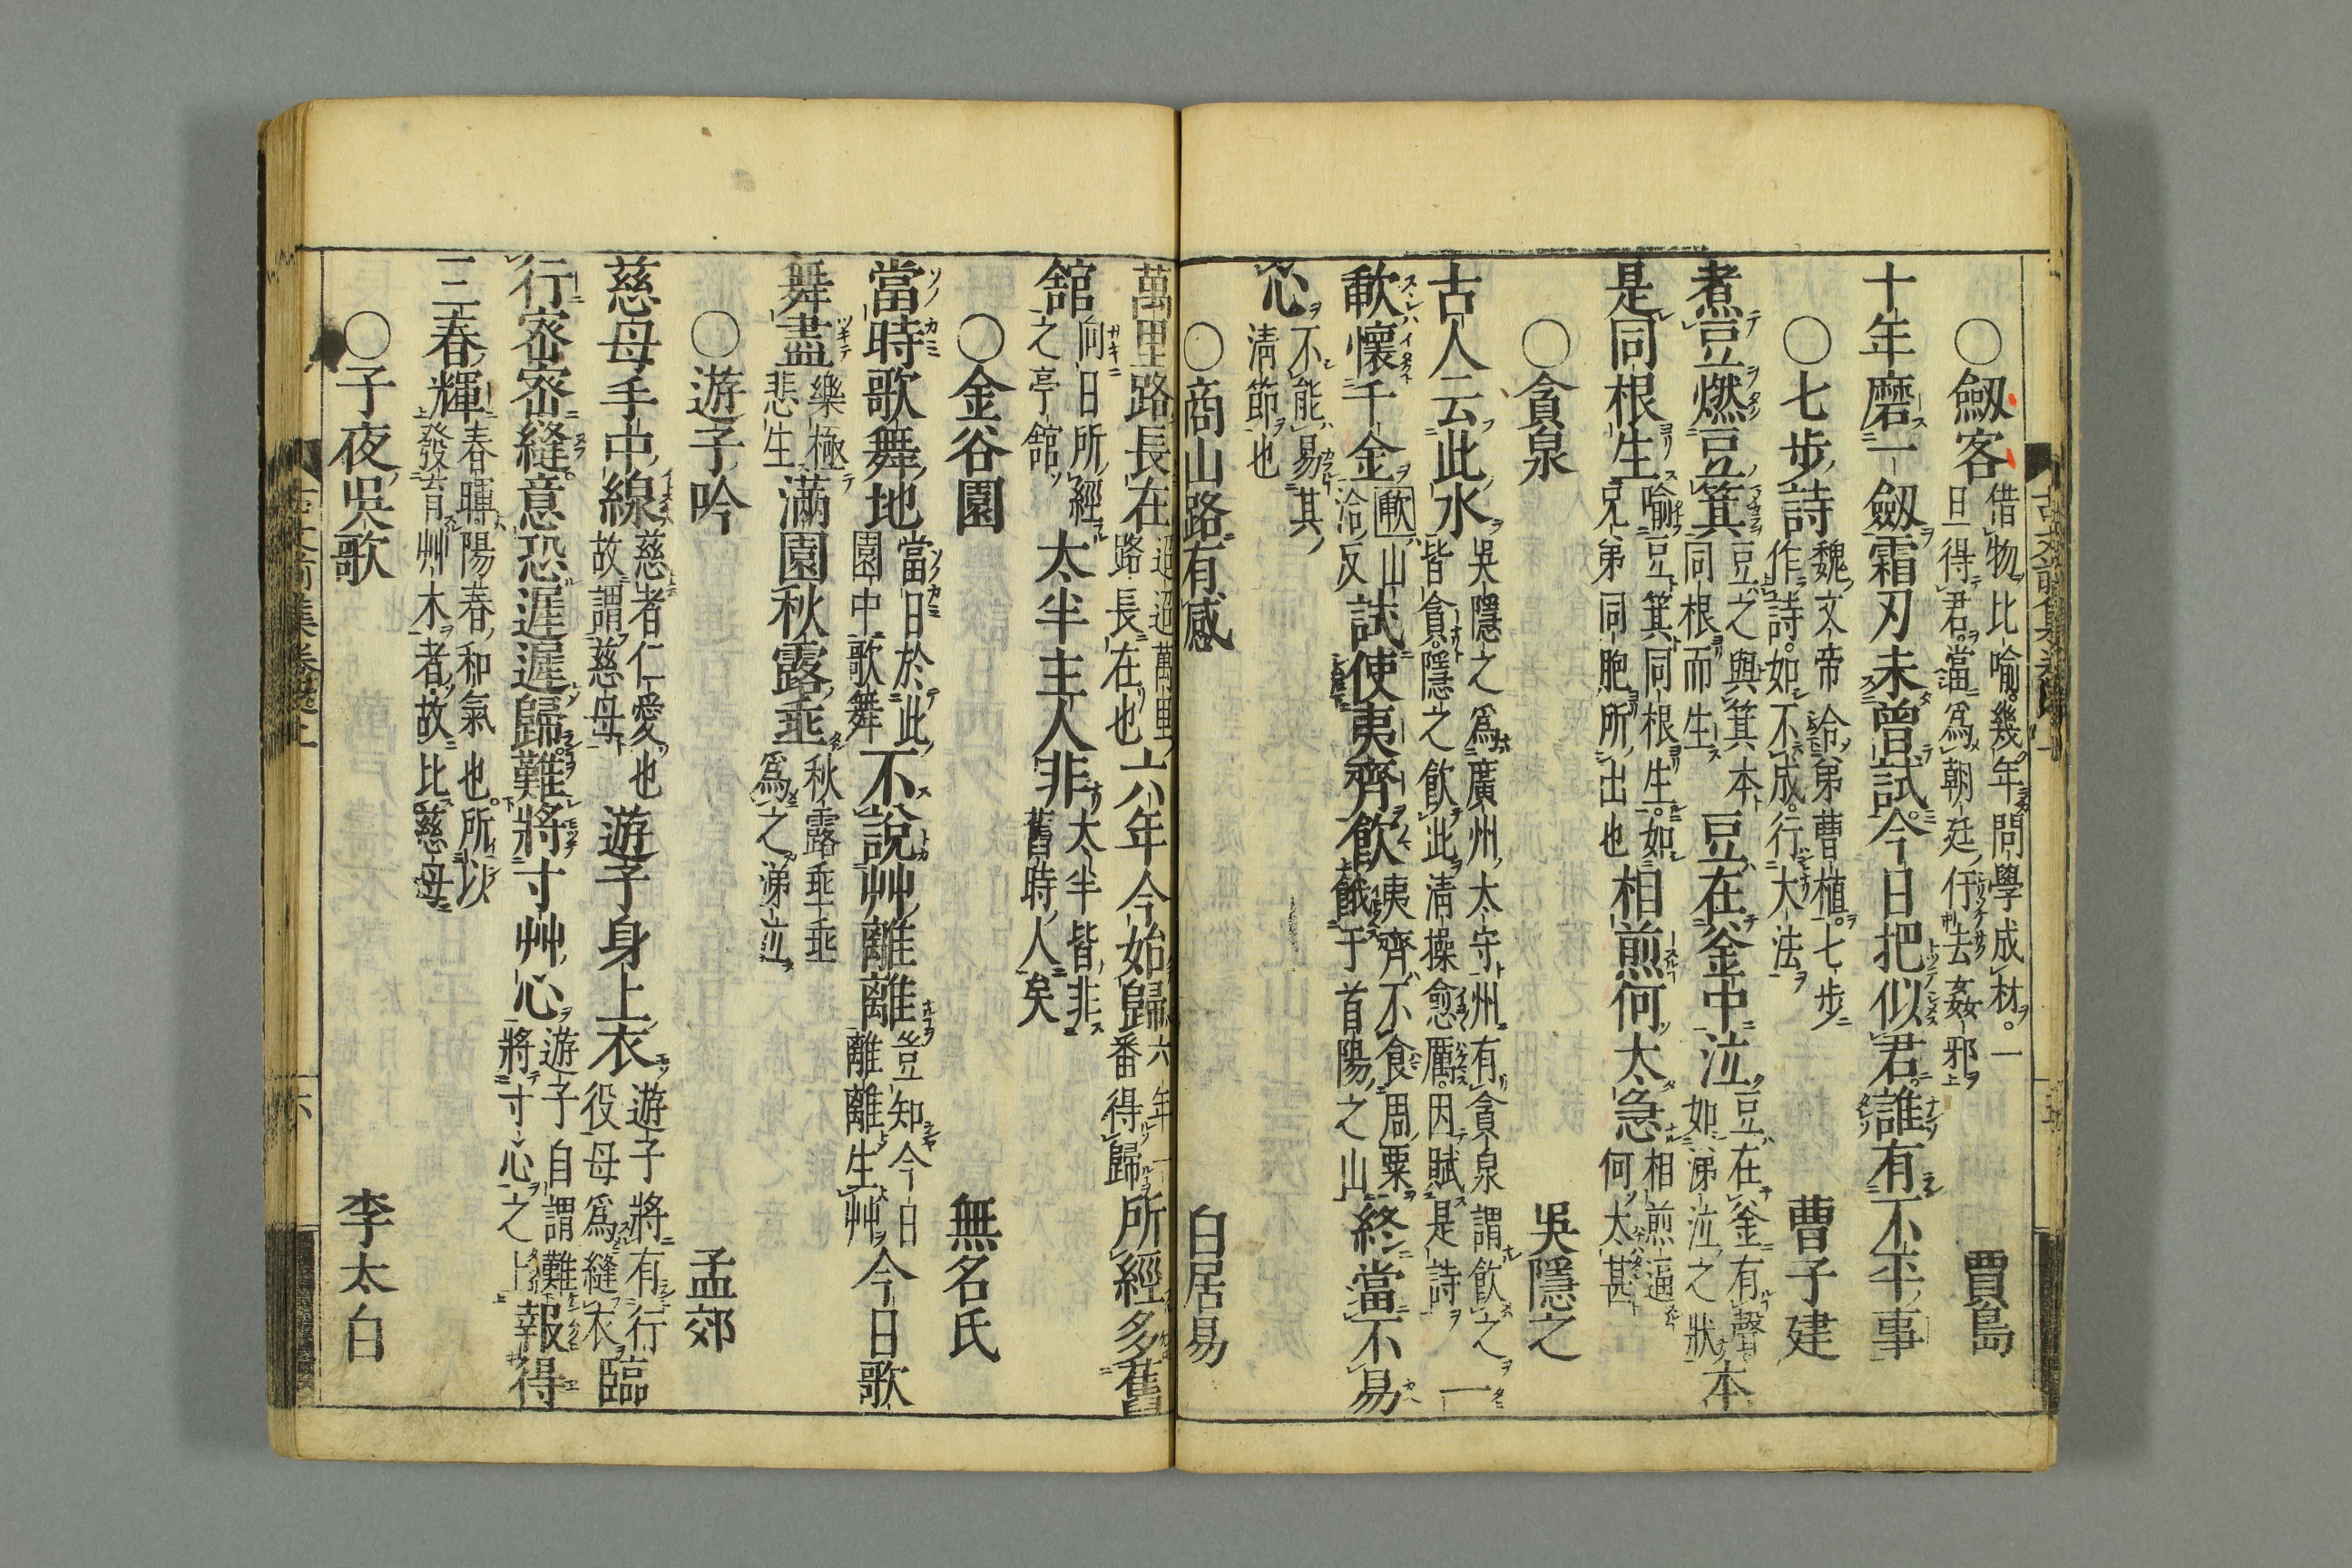 ○劔客 借物比喻幾年問學成材一旦得君當爲朝廷仗去姦邪 賈島
十年磨一劔霜刃未曾試今日把似君誰有不平事
○七步詩 魏文帝令弟曹植七步作詩如不成行大法 曹子建
煮豆燃豆萁 豆之與萁本同根而生 豆在釜中泣 豆在釜有聲如涕泣之狀 本
是同根生 喻豆萁同根生如兄弟同胞所出也 相煎何太急 相煎逼何太甚
○貪泉 吳隱之
古人云此水 吳隱之爲廣州太守州有貪泉謂飲之皆貪隱之飲此清操愈厲因賦是詩 一
歃懷千金 歃山洽反 試使夷齊飲 夷齊不食周粟餓于首陽之山 終當不易
心 不能易其清節也
○商山路有感 白居易
萬里路長在 迢迢萬里路長在也 六年今始歸 六年一番得歸 所經多舊
舘 向日所經之亭舘 太半主人非 太半皆非舊時人矣
○金谷園 無名氏
當時歌舞地 當日於此園中歌舞 不說艸離離 豈知今日離離生艸 今日歌
舞盡 樂極悲生 滿園秋露垂 秋露垂垂爲之涕泣
○遊子吟 孟郊
慈母手中線 慈者仁愛也故謂慈母 遊子身上衣 遊子將有行役母爲縫衣 臨
行密密縫意恐遲遲歸難將寸艸心 遊子自謂難將寸心之上 報得
三春輝 春暉陽春和氣也所以發育艸木者故比慈母
○子夜吳歌 李太白